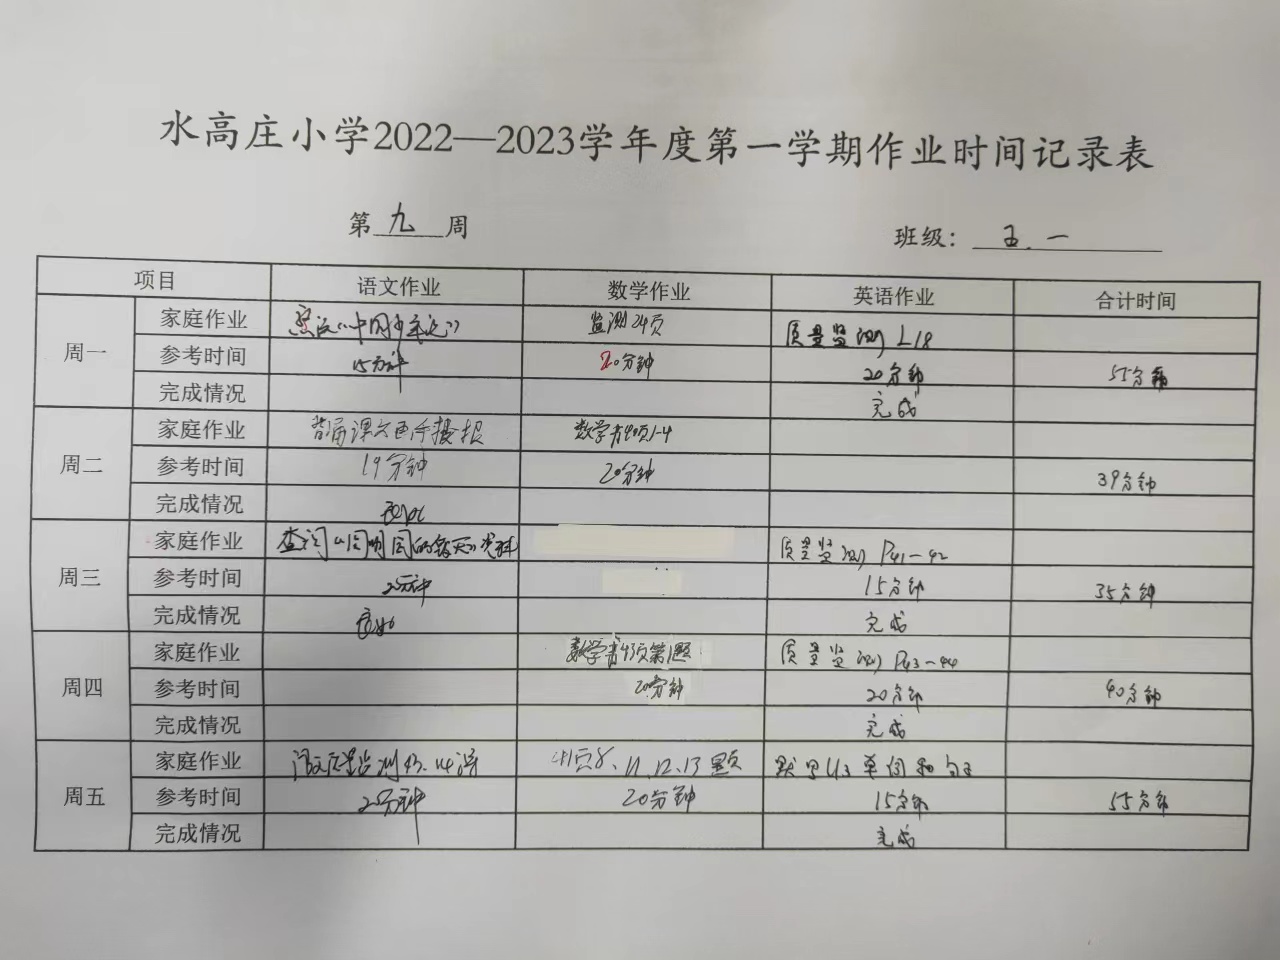 水高庄小学2022—2023学年度第一学期作业时间记录表
第 九 周 班级： 五.一
项目 语文作业 数学作业 英语作业 合计时间
周一
家庭作业 监测24页 质量监测 L18
参考时间 15分钟 20分钟 20分钟 55分钟
完成情况 完成
周二
家庭作业 背诵课文画手抄报 数学书40页1-4
参考时间 19分钟 20分钟 39分钟
完成情况 良好
周三
家庭作业 查阅 质量监测 P41-42
参考时间 分钟 15分钟 35分钟
完成情况 良好 完成
周四
家庭作业 数学书 页第1题 质量监测 P43-44
参考时间 20分钟 20分钟 40分钟
完成情况 完成
周五
家庭作业 41页8、11、12、13题 默写U3单词和句子
参考时间 分钟 20分钟 15分钟 55分钟
完成情况 完成